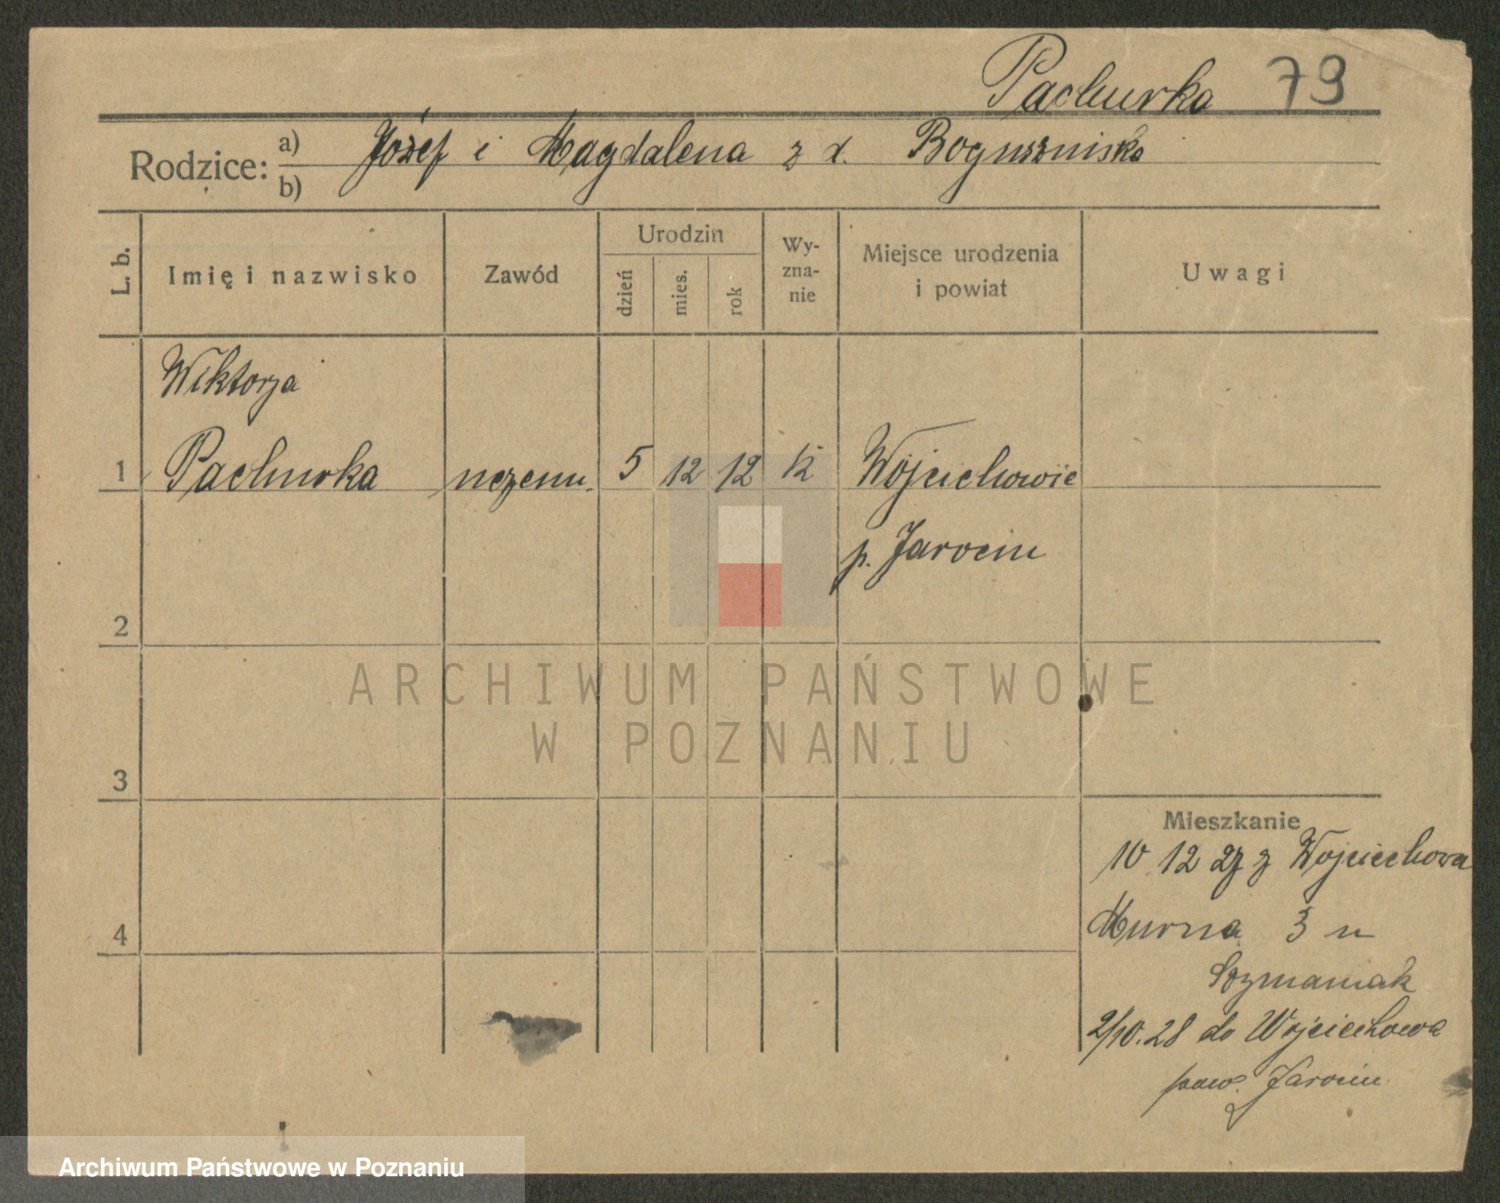 Pachurka 79
Rodzice: a) Józef i Magdalena z d. Boguszniska
b)
L. b.
Imię i nazwisko
Zawód
Urodzin
dzień
mies.
rok
Wy-
zna-
nie
Miejsce urodzenia
i powiat
Uwagi
Wiktorja
1 Pachurka uczenn. 5 12 12 k Wojciechowie
p. Jarocin
2
3
4
Mieszkanie
10 12 27 z Wojciechowa
Murna 3 u
Szymaniak
2/10.28 do Wojciechowa
pow. Jarocin
ARCHIWUM PAŃSTWOWE
W POZNANIU
Archiwum Państwowe w Poznaniu